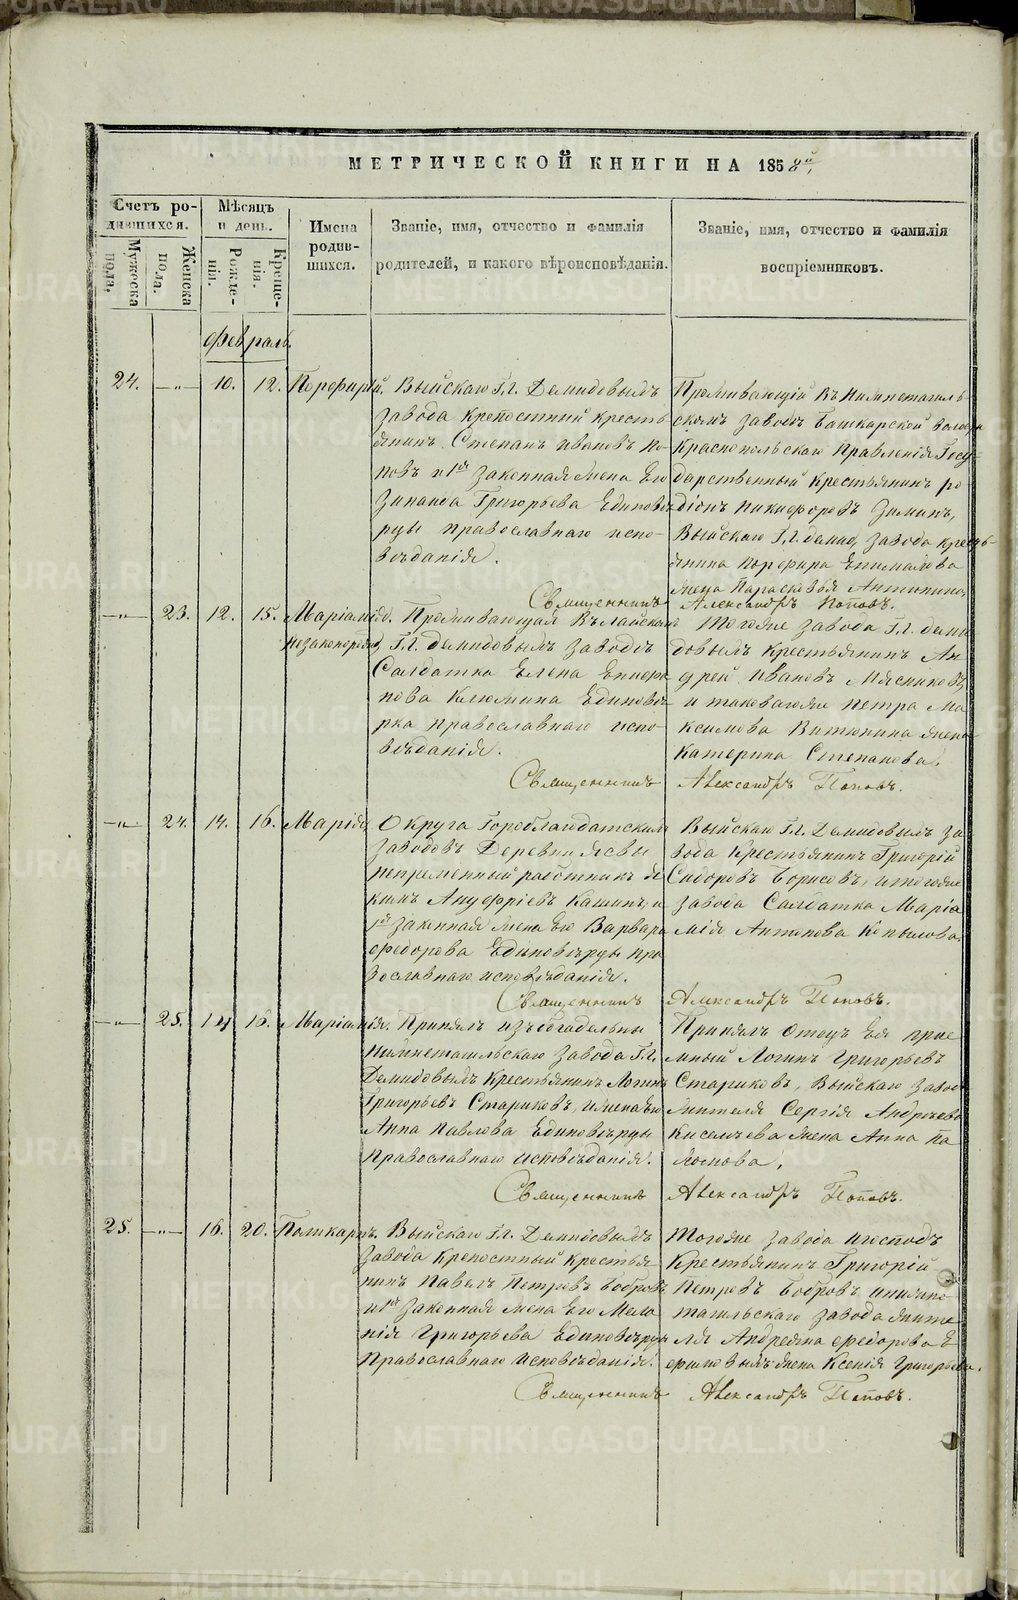 МЕТРИЧЕСКОЙ КНИГИ НА 1858й,
Счетъ родившихся.
Мужеска пола,
Женска пола.
Мѣсяцъ и день.
Рожденія.
Крещенія.
Имена родившихся.
Званіе, имя, отчество и фамилія
родителей, и какого вѣроисповѣданія.
Званіе, имя, отчество и фамилія
воспріемниковъ.
Февраль
24. —„— 10. 12. Порфирій.
Выйскаго Гг. Демидовыхъ
завода крепостный кресть
янинъ Степанъ Ивановъ По
повъ и 1я законная жена его
Зинаида Григорьева Единовѣ
рцы православнаго испо-
вѣданія.
Проживающій въ Нижнетагиль-
скомъ заводѣ Башкарской волости
Краснопольскаго Правленія Госу-
дарственный крестьянинъ Ро-
діонъ Никифоровъ Зиминъ,
Выйскаго Гг. демид. завода кресть-
янина Порфира
жена Парасковья
Священникъ Александръ Поповъ.
—„— 23. 12. 15. Маріамія.
незаконорожд.
Проживающая въ
Гг. Демидовыхъ заводѣ
Салдатка Елена
Клюкина Единовѣ
рка православнаго испо-
вѣданія.
Тогоже завода Гг. деми
довыхъ крестьянинъ Ан
дрей Ивановъ Мясниковъ,
и таковагоже Петра Ма
ксимова жена
Катерина Степанова.
Священникъ Александръ Поповъ.
—„— 24. 14. 16. Марія.
Округа Гороблагодатскихъ
заводовъ Деревни Ясвы
непременный работникъ
Ануфріевъ Кашинъ, и
1я законная жена его Варвара
Федорова Единовѣрцы пра
вославнаго исповѣданія.
Выйскаго Гг. Демидовыхъ за
вода крестьянинъ Григорій
Сидоровъ Борисовъ, и тогоже
завода Салдатка Маріа
мія Антонова Копылова.
Священникъ Александръ Поповъ.
—„— 25. 14 16. Маріамія.
Принялъ изъ богадельны
Нижнетагильскаго завода Гг.
Демидовыхъ крестьянинъ Логинъ
Григорьевъ Стариковъ, и жена его
Анна Павлова Единовѣрцы
Православнаго исповѣданія.
Принялъ отецъ ея прие
мный Логинъ Григорьевъ
Стариковъ, Выйскаго завода
жителя Сергія Андрѣева
Киселева жена Анна Па
Священникъ Александръ Поповъ.
25. —„— 16. 20. Поликарпъ.
Выйскаго Гг. Демидовыхъ
завода крепостный крестья
нинъ Павелъ Петровъ Бобровъ
и 1я законная жена его Мела
нія Григорьева Единовѣрцы
Православнаго исповѣданія.
Тогоже завода и господъ
крестьянинъ Григорій
Петровъ Бобровъ и нижне
тагильскаго завода жите
ля Андреяна Федорова Е
жена Ксенія Григорьева.
Священникъ Александръ Поповъ.
METRIKI.GASO-URAL.RU